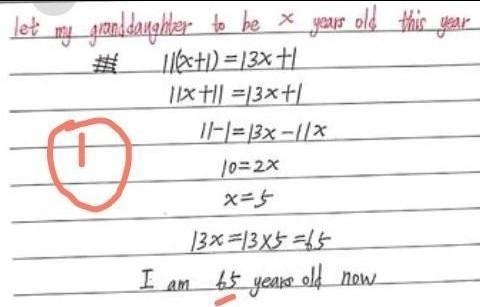 let my granddaughter to be x years old this year
11(x+1)=13x+1
11x+11=13x+1
11-1=13x-11x
1
10=2x
x=5
13x=13x5=65
I am 65 years old now